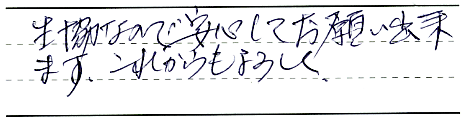 生協なので安心してお願い出来
ます、これからもよろしく、